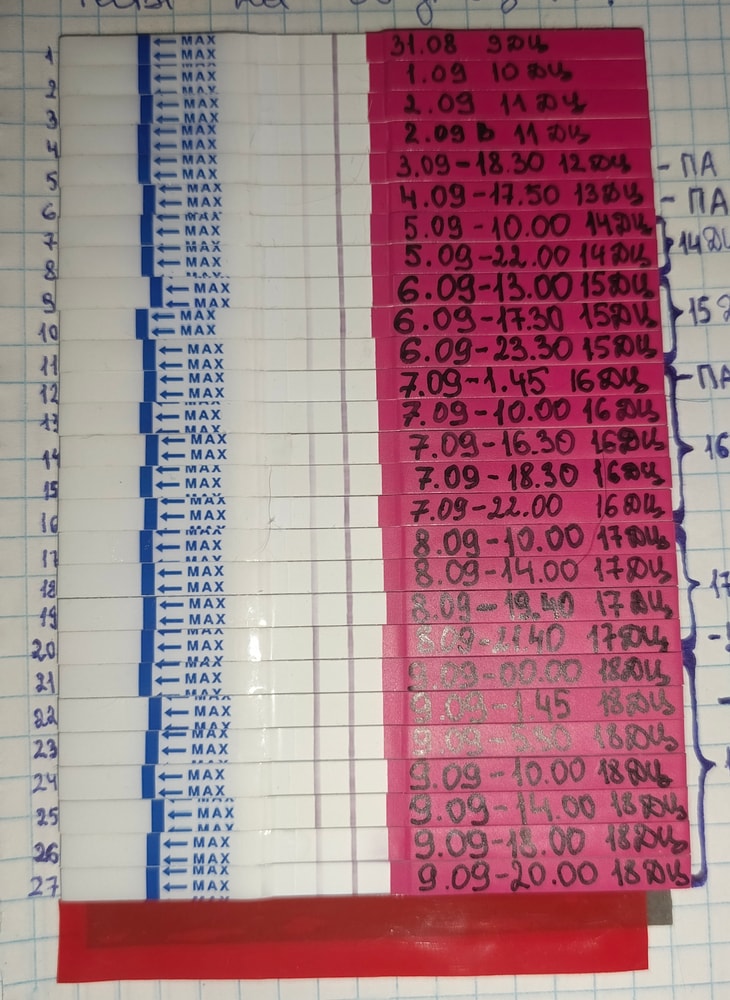 на
1 MAX 31.08 9 ДЦ
MAX
2 MAX 1.09 10 ДЦ
MAX
3 MAX 2.09 11 ДЦ
4 MAX 2.09 в 11 ДЦ
5 MAX 3.09-18.30 12 ДЦ - ПА
6 MAX 4.09-17.50 13 ДЦ - ПА
7 MAX 5.09-10.00 14 ДЦ
14 ДЦ
8 MAX 5.09-22.00 14 ДЦ
9 MAX 6.09-13.00 15 ДЦ
MAX
10 MAX 6.09-17.30 15 ДЦ
15
11 MAX 6.09-23.30 15 ДЦ
12 MAX 7.09-1.45 16 ДЦ - ПА
13 MAX 7.09-10.00 16 ДЦ
14 MAX 7.09-16.30 16 ДЦ
16
15 MAX 7.09-18.30 16 ДЦ
16 MAX 7.09-22.00 16 ДЦ
17 MAX 8.09-10.00 17 ДЦ
18 MAX 8.09-14.00 17 ДЦ
17
19 MAX 8.09-19.40 17 ДЦ
20 MAX 8.09-21.40 17 ДЦ
21 MAX 9.09-00.00 18 ДЦ
22 MAX 9.09-1.45 18 ДЦ
23 MAX 9.09-5.30 18 ДЦ
24 MAX 9.09-10.00 18 ДЦ
25 MAX 9.09-14.00 18 ДЦ
26 MAX 9.09-18.00 18 ДЦ
27 MAX 9.09-20.00 18 ДЦ